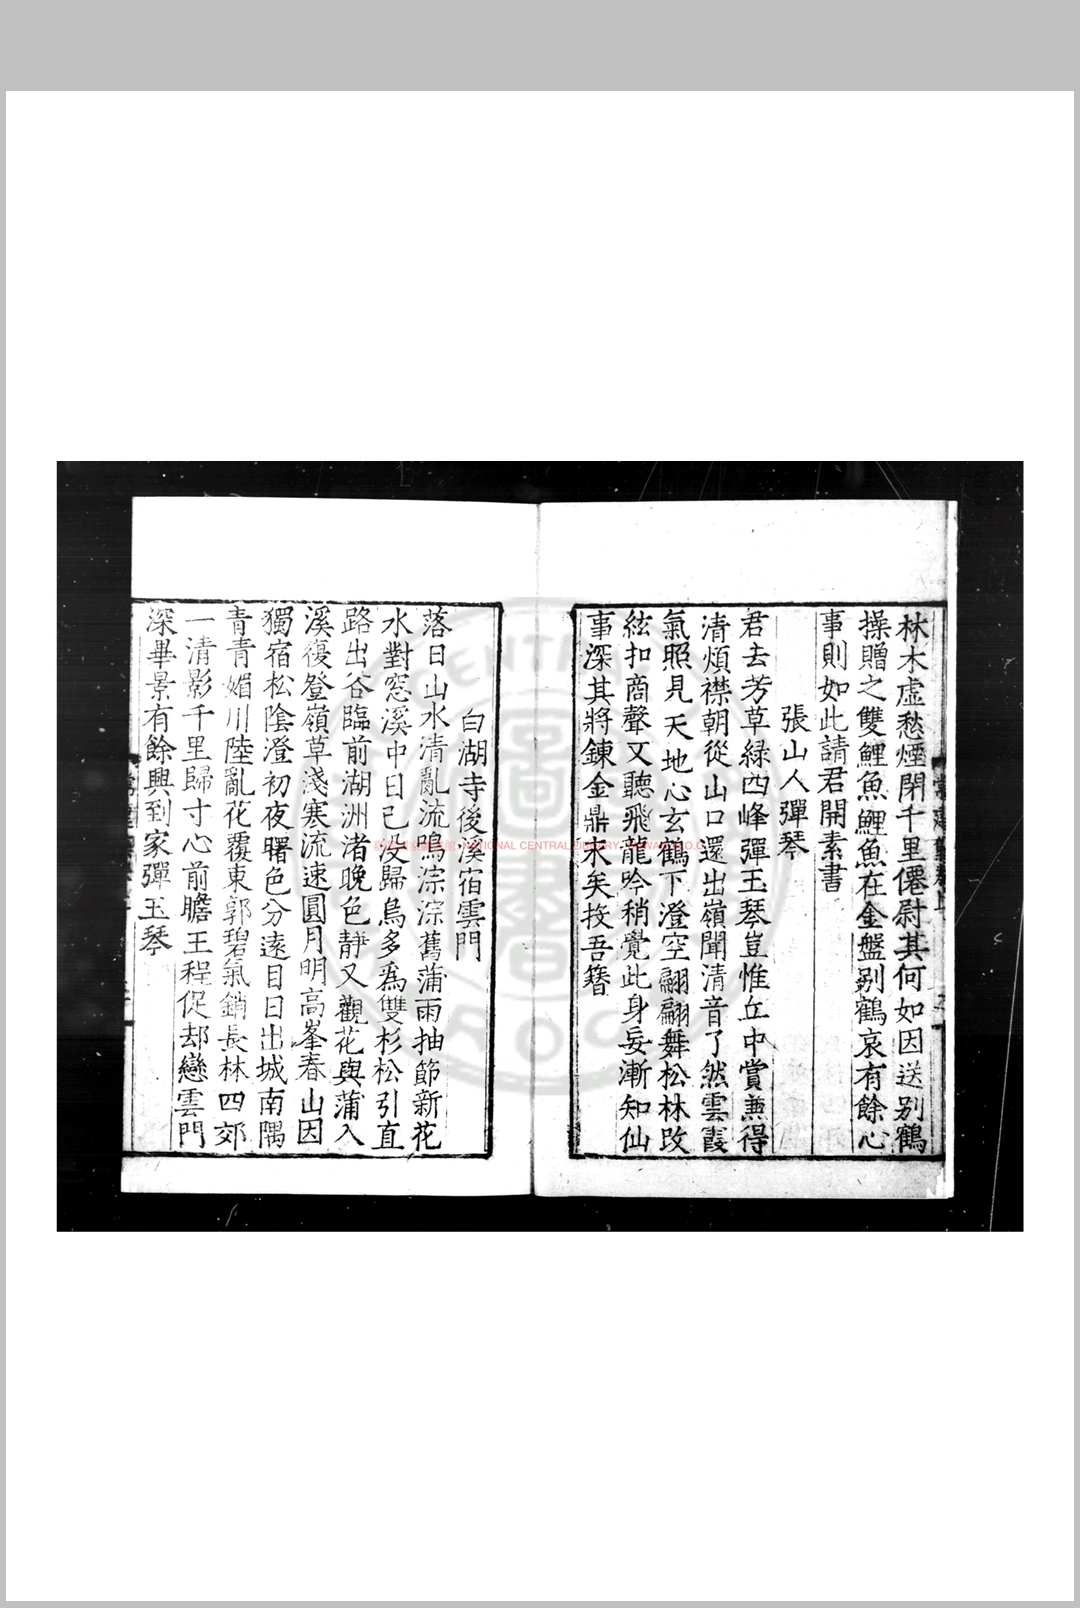 林木虛愁煙閉千里僊尉其何如因送别鶴
操贈之雙鯉魚鯉魚在金盤别鶴哀有餘心
事則如此請君開素書
張山人彈琴
君去芳草綠四峰彈玉琴豈惟丘中賞兼得
清煩襟朝從山口還出嶺聞清音了然雲霞
氣照見天地心玄鶴下澄空翩翩舞松林改
絃扣商聲又聽飛龍吟稍覺此身妄漸知仙
事深其將鍊金鼎永矣投吾簪
白湖寺後溪宿雲門
落日山水清亂流鳴淙淙舊蒲雨抽節新花
水對窓溪中日已没歸鳥多爲雙杉松引直
路出谷臨前湖洲渚晚色靜又觀花與蒲入
溪復登嶺草淺寒流速圓月明高峯春山因
獨宿松陰澄初夜曙色分遠目日出城南隅
青青媚川陸亂花覆東郭碧氣銷長林四郊
一清影千里歸寸心前瞻王程促却戀雲門
深畢景有餘興到家彈玉琴
NATIONAL CENTRAL LIBRARY